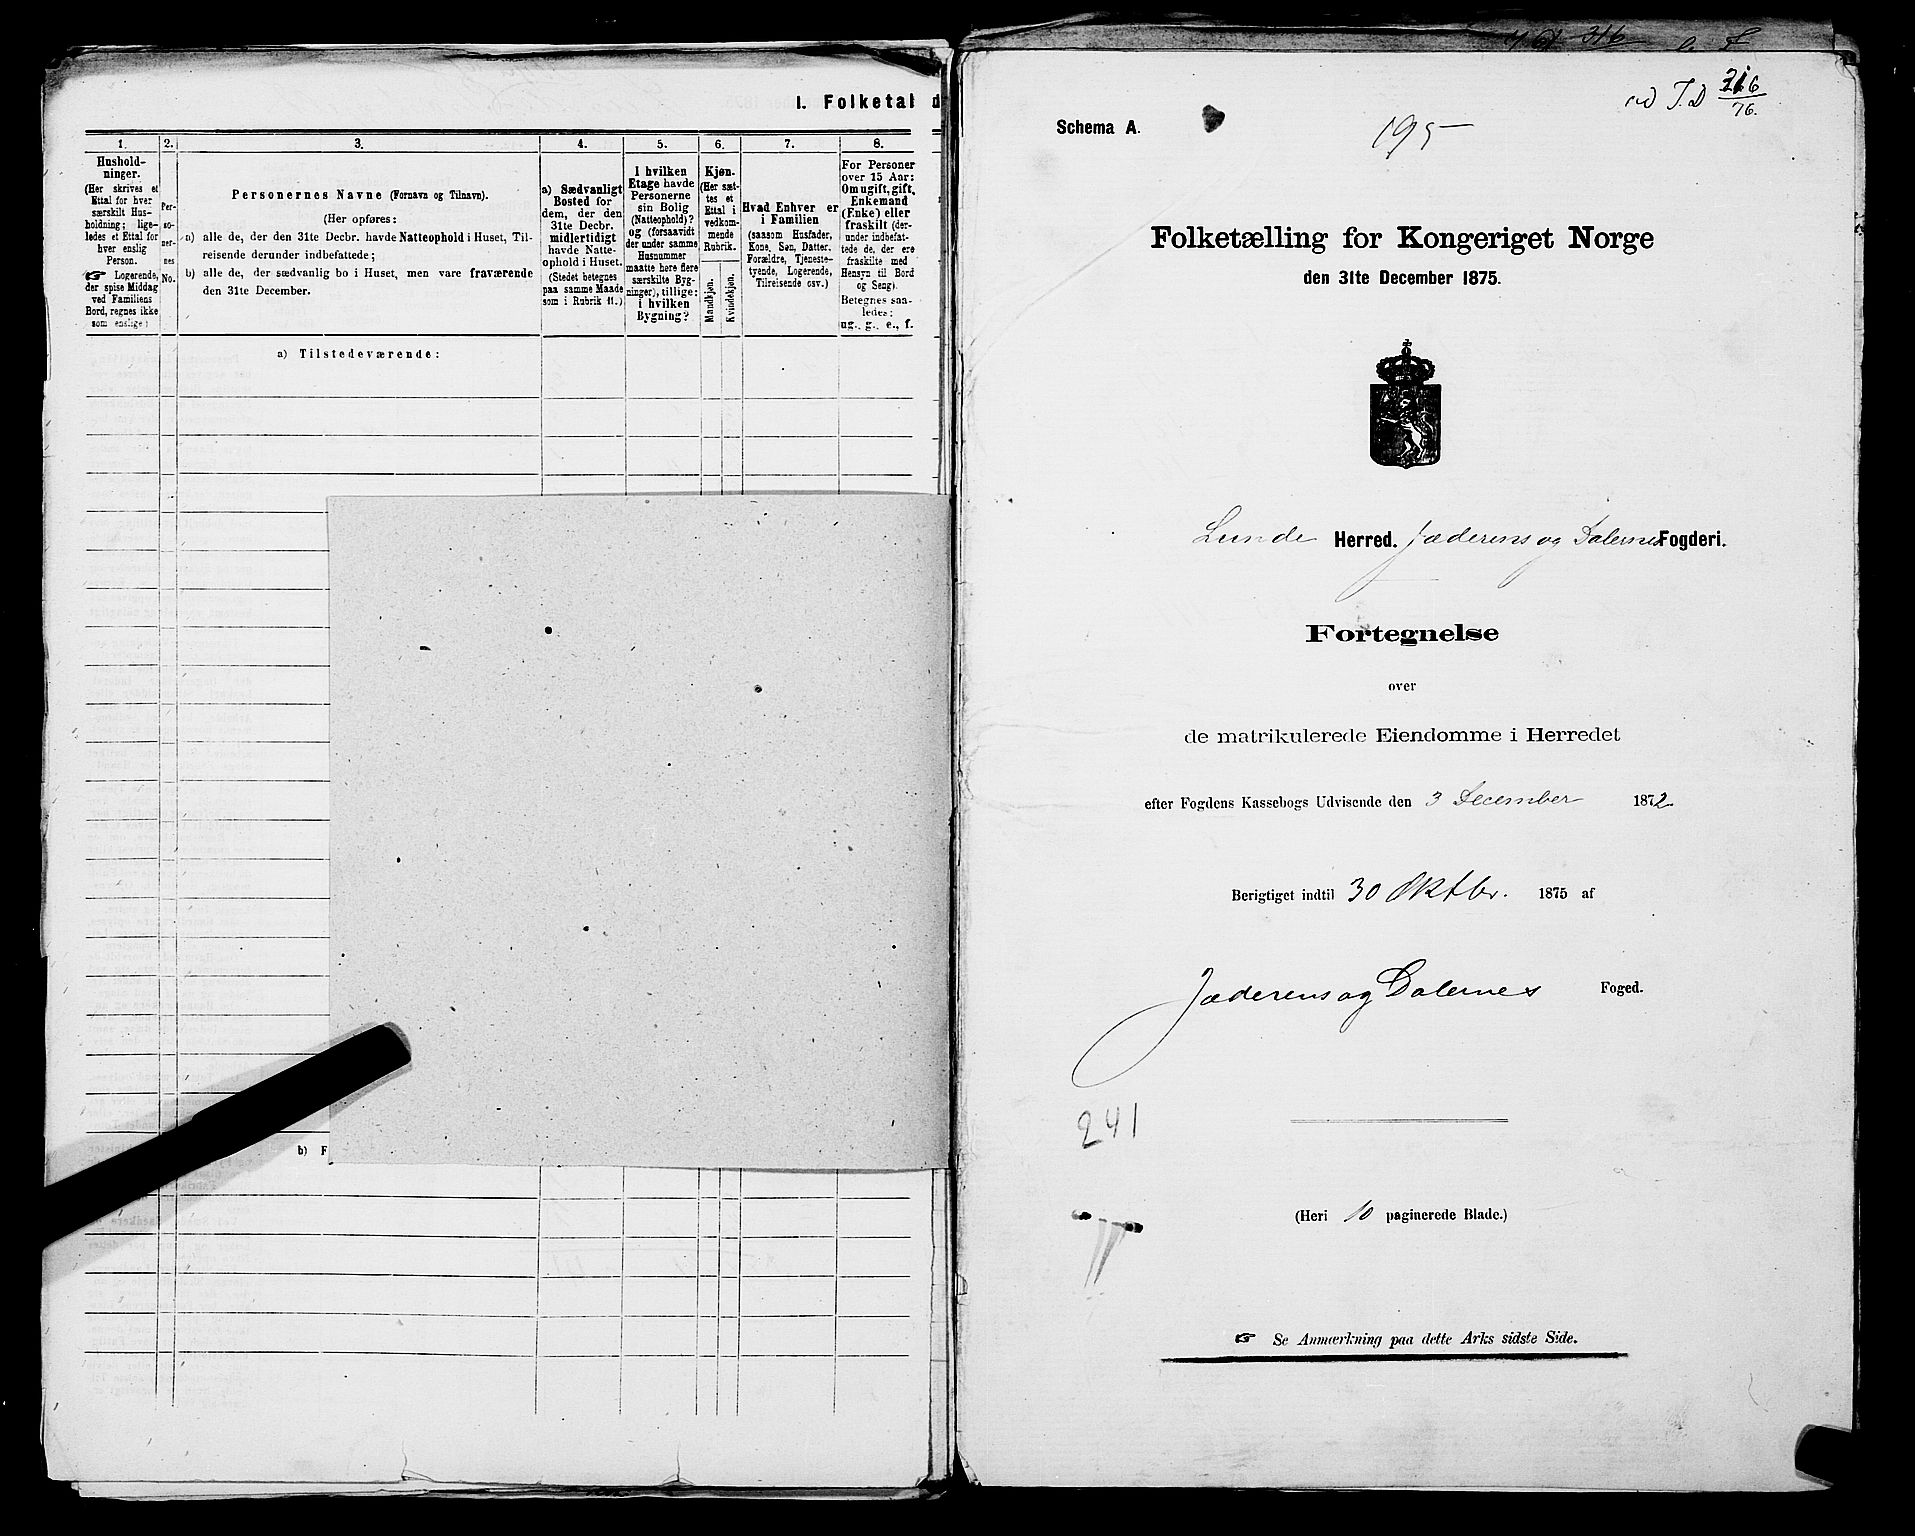 I. Folketal d
1.
Hushold-
ninger.
(Her skrives et
Ettal for hver
særskilt Hus-
holdning; lige-
ledes et Ettal for
hver enslig
Person.
☞ Logerende,
der spise Middag
ved Familiens
Bord, regnes ikke
som enslige)
2.
Per-
so-
ner-
nes
No.
3.
Personernes Navne (Fornavn og Tilnavn).
(Her opføres:
a) alle de, der den 31te Decbr. havde Natteophold i Huset, Til-
reisende derunder indbefattede;
b) alle de, der sædvanlig bo i Huset, men vare fraværende
den 31te December.
4.
a) Sædvanligt
Bosted for
dem, der den
31te Decbr.
midlertidigt
havde Natte-
ophold i Huset.
(Stedet betegnes
paa samme Maade
som i Rubrik 11.)
5.
I hvilken
Etage havde
Personerne
sin Bolig
(Natteophold)?
og (forsaavidt
der under samme
Husnummer
maatte høre flere
særskilte Byg-
ninger), tillige:
i hvilken
Bygning?
6.
Kjøn.
(Her sæt-
tes et
Ettal i
vedkom-
mende
Rubrik.
Mandkjøn.
Kvindekjøn.
7.
Hvad Enhver er
i Familien
(saasom Husfader,
Kone, Søn, Datter,
Forældre, Tjeneste-
tyende, Logerende,
Tilreisende osv.)
8.
For Personer
over 15 Aar:
Om ugift, gift,
Enkemand
(Enke) eller
fraskilt (der-
under indbefat-
tede de, der ere
fraskilte med
Hensyn til Bord
og Seng).
Betegnes saa-
ledes:
ug., g., e., f.
a) Tilstedeværende:
b) F
316
76.
Schema A.
195
Folketælling for Kongeriget Norge
den 31te December 1875.
Lunde Herred. Jæderens og Dalernes Fogderi.
Fortegnelse
over
de matrikulerede Eiendomme i Herredet
efter Fogdens Kassebogs Udvisende den 3 December 1872.
Berigtiget indtil 30 Oktbr. 1875 af
Jæderens og Dalernes Foged.
241
(Heri 10 paginerede Blade.)
☞ Se Anmærkning paa dette Arks sidste Side.